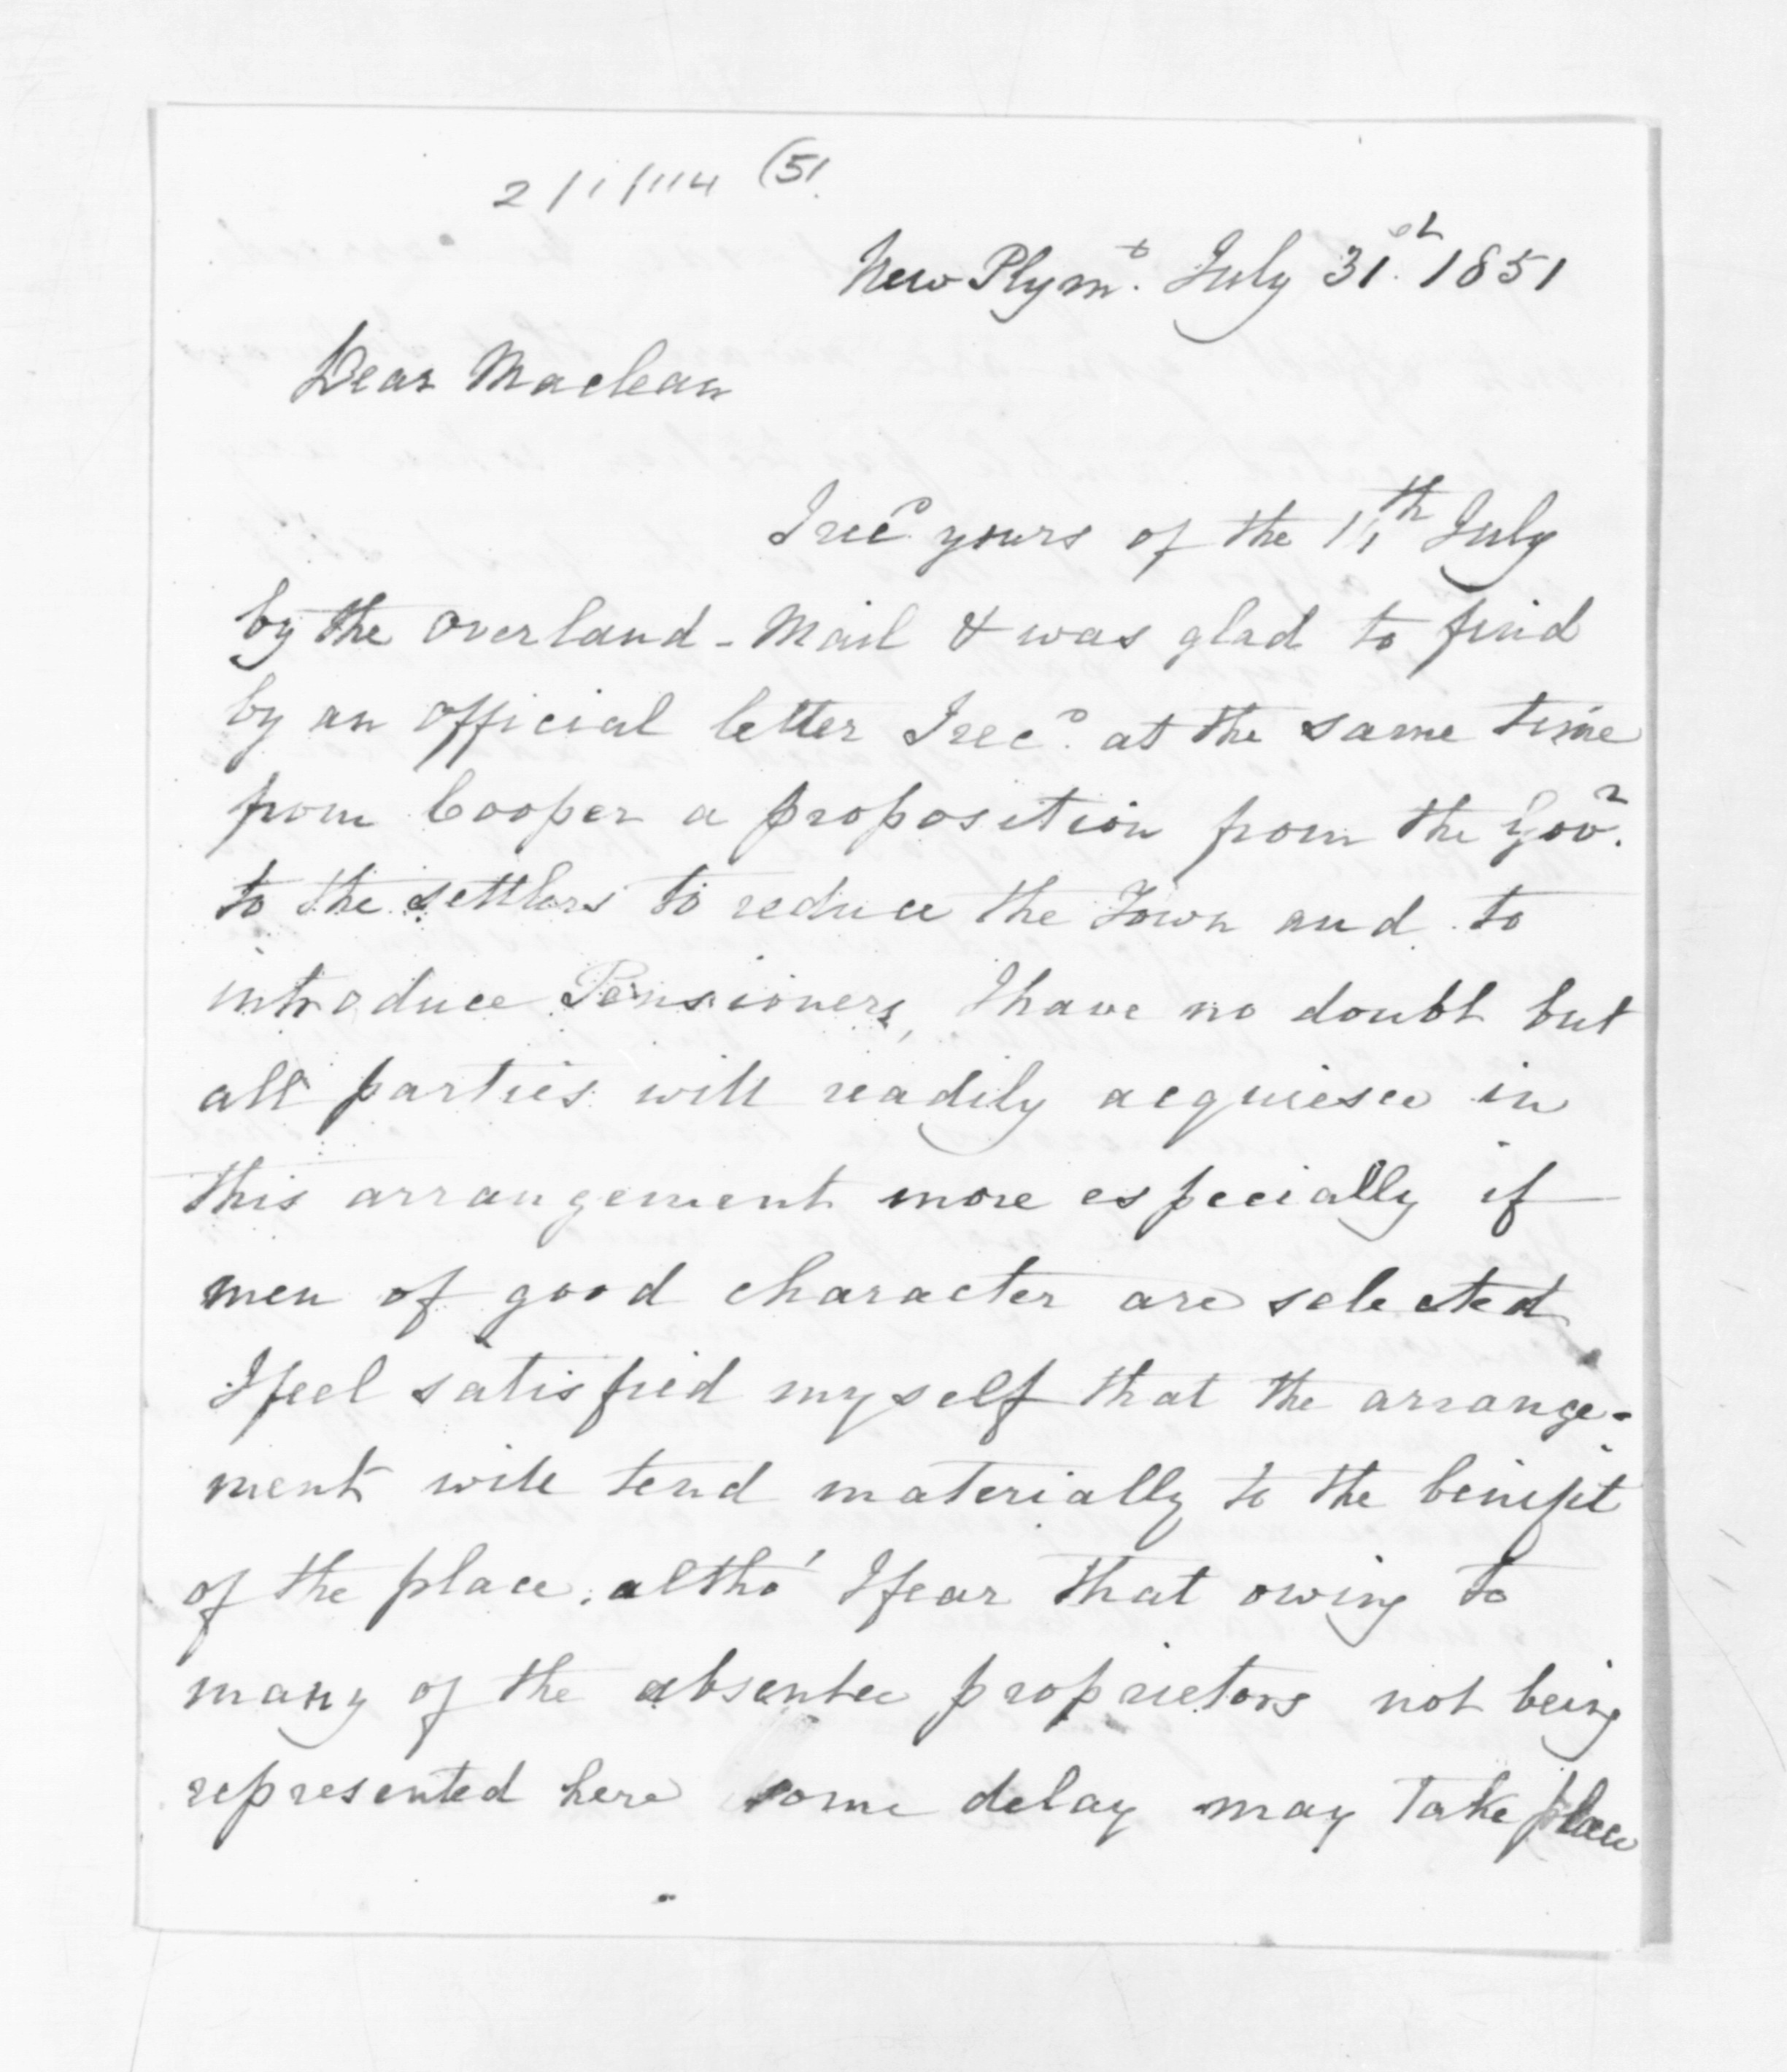 2/1/114 (51.
New Plym.t July 31.st 1851
Dear Maclean
I rec.d yours of the 11th July
by the overland-Mail & was glad to find
by an official letter I rec.d at the same time
from Cooper a proposition from the Gov.r
to the settlers to reduce the Town and to
introduce Pensioners, I have no doubt but
all parties will readily acquiesce in
this arrangement more especially if
men of good character are selected
I feel satisfied myself that the arrange-
ment will tend materially to the benefit
of the place, altho' I fear that owing to
many of the absentee proprietors not being
represented here some delay may take place